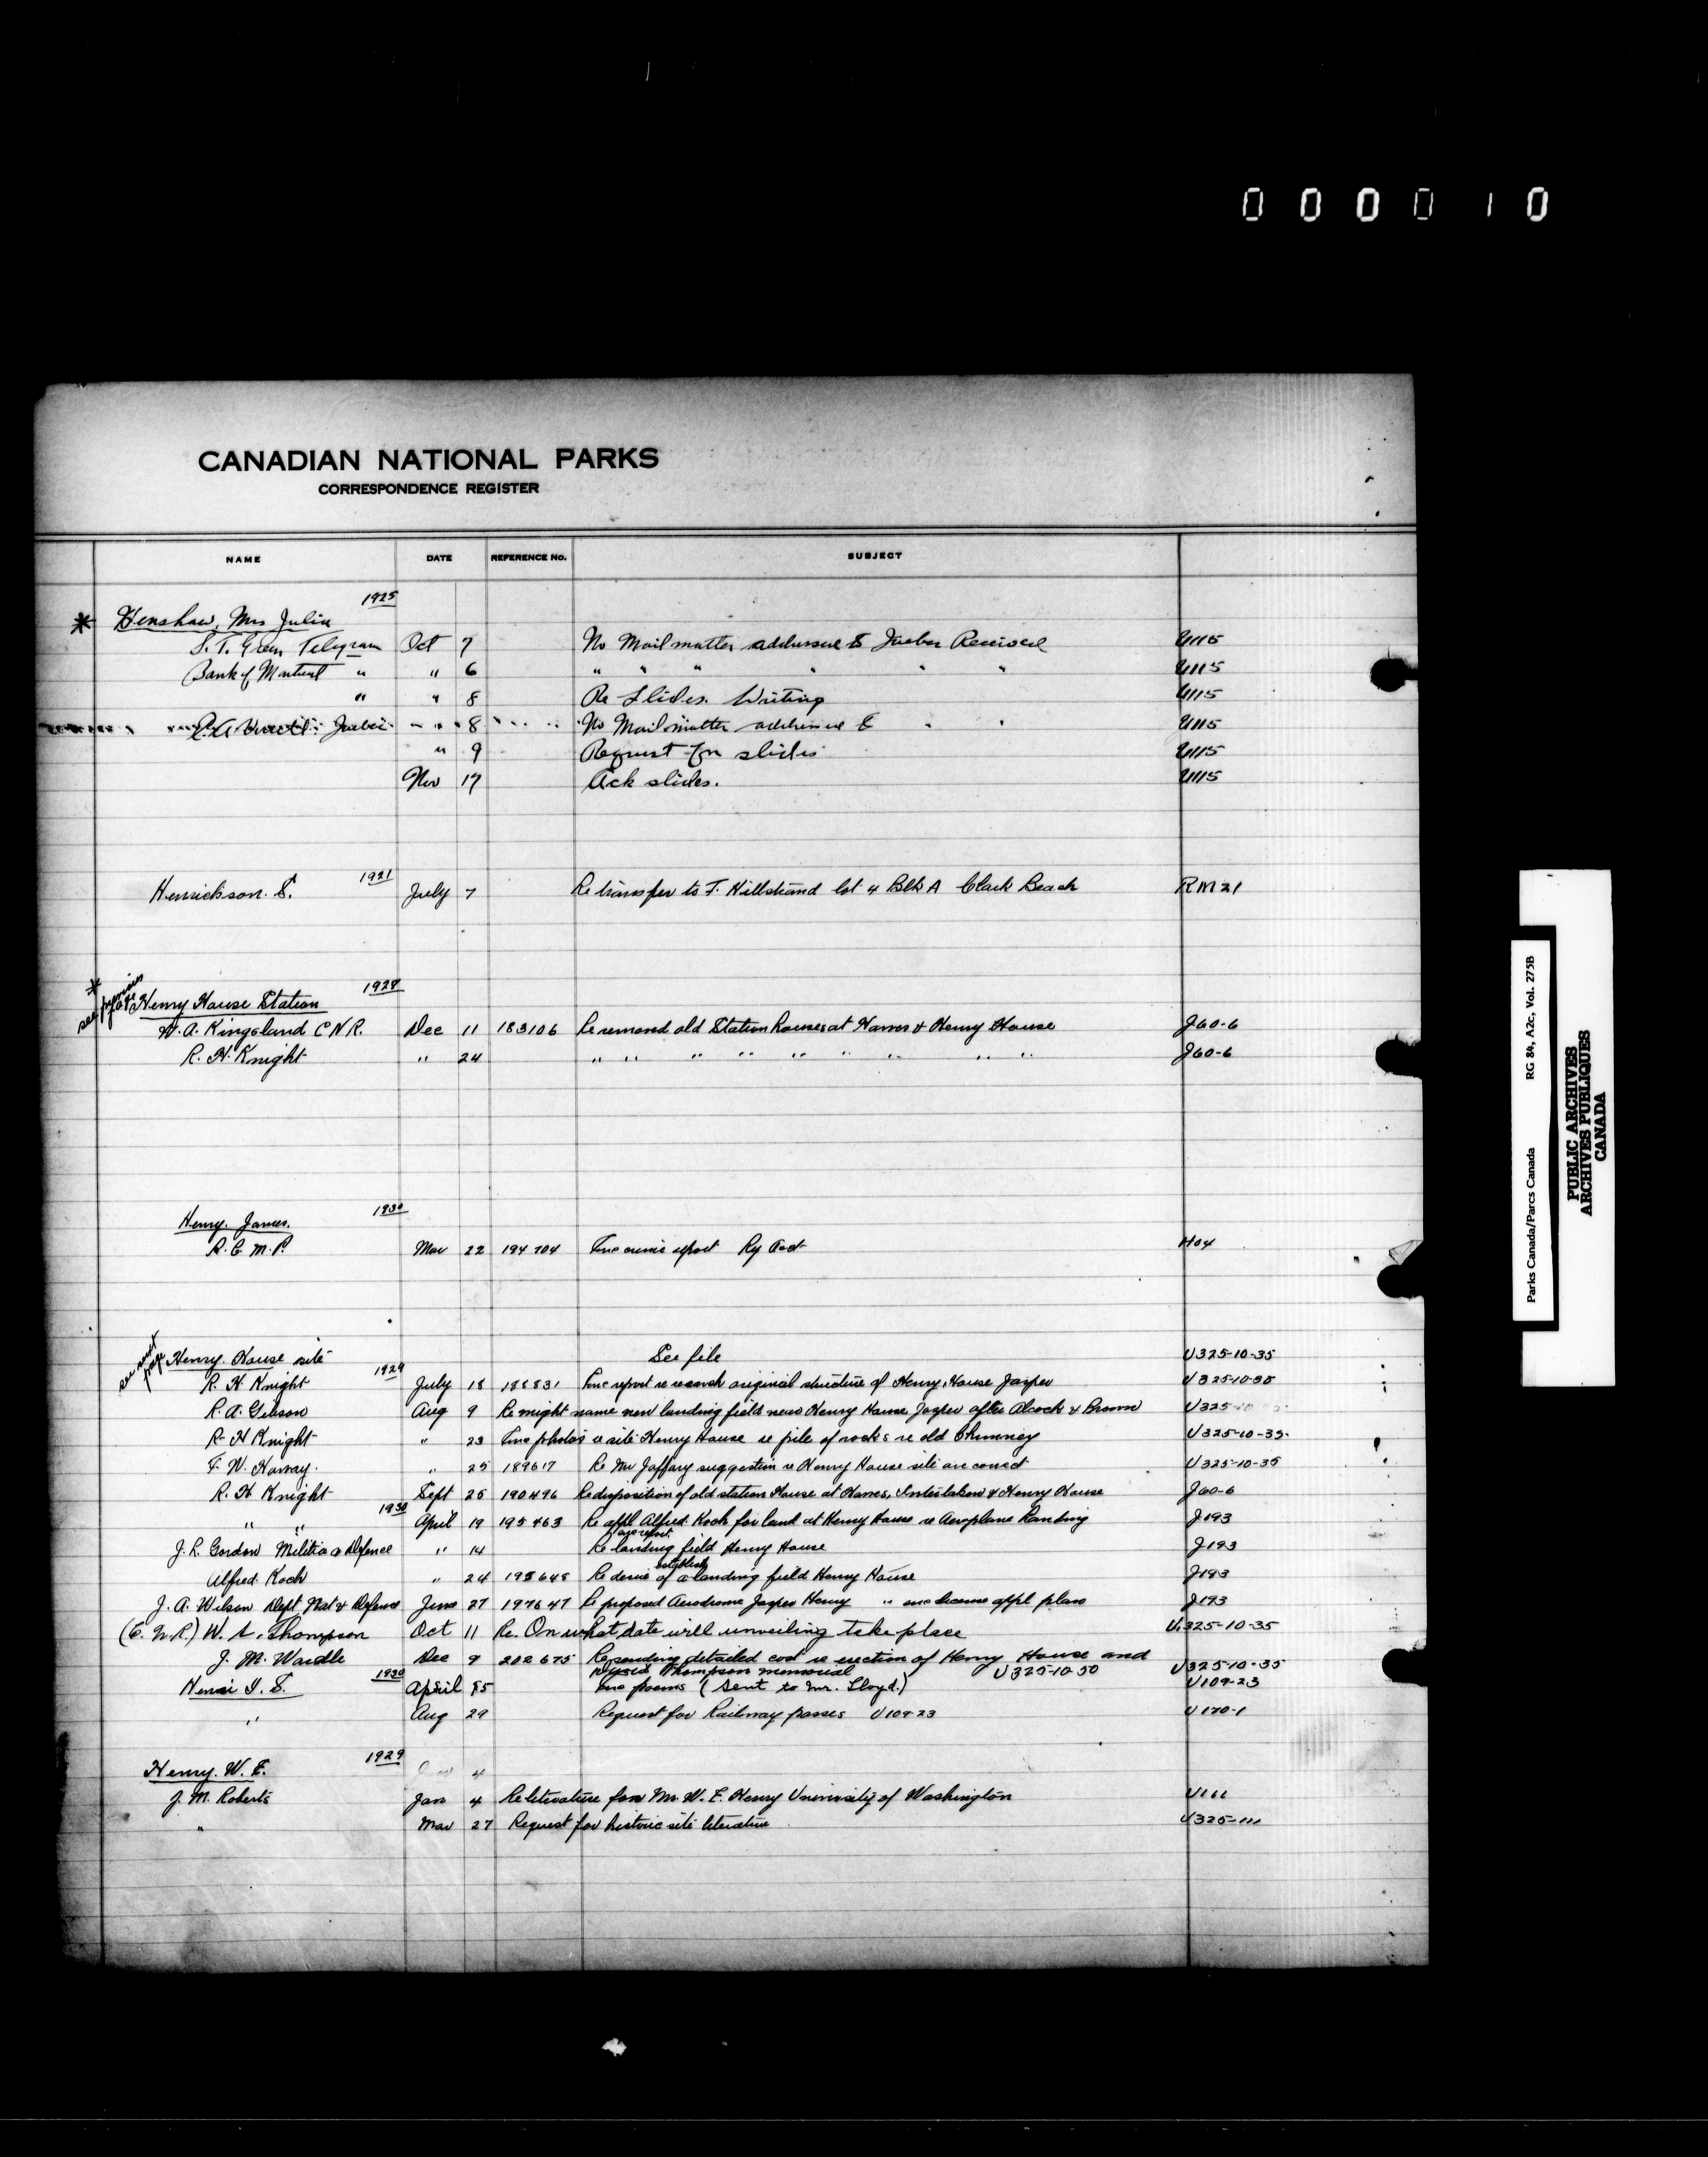 000010
CANADIAN NATIONAL PARKS
CORRESPONDENCE REGISTER
NAME DATE REFERENCE No. SUBJECT
1925
* Henshaw, Mrs Julia
S. T. Green Telegram Oct 7 No Mail matter addressed to Received U115
Bank of Montreal " " 6 " " " " " " U115
" " 8 Re Slides. Writing U115
" 8 No Mail matter addressed to " " U115
" 9 Request for slides U115
Nov 17 Ack slides. U115
1921
Henrickson. S. July 7 Re transfer to T. Hillstrand lot 4 Blk A Clark Beach RM21
* see previous page
1928
Henry House Station
W. A. Kingsland C N R. Dec 11 183106 Re removal old Station houses at & Henry House J60-6
R. H. Knight " 24 " " " " " " " " " J60-6
1930
Henry. James.
R. C. M. P. Mar 22 194704 crime report Ry Act H04
see next page
Henry. House site See file U325-10-35
1929
R. H. Knight July 18 188831 report re research original structure of Henry House Jasper U325-10-35
R. A. Gibson Aug 9 Re might name new landing field near Henry House Jasper after Alcock & Brown U325
R. H Knight " 23 photos re site Henry House re pile of rocks re old Chimney U325-10-35.
F. W. " 25 189617 Re Mr suggestion re Henry House site are correct U325-10-35
R. H Knight Sept 25 190496 Re disposition of old station House at Interlaken & Henry House J60-6
1930
" " April 19 195463 Re appl Alfred Koch for land at Henry House re Aeroplane Landing J193
J. R. Gordon Militia & Defence " 14 Re landing field Henry House J193
Alfred. Koch " 24 195648 Re desire of establish a landing field Henry House J193
J. A. Wilson Dept. Nat'l Defence June 27 197647 Re proposed Aerodrome Jasper Henry " license appl plans J193
(C. N. R.) W. Thompson Oct 11 Re. On what date will unveiling take place U325-10-35
J. M. Wardle Dec 9 202675 Re sending detailed cost re erection of Henry House and
David Thompson memorial U325-10-50 U325-10-35
1930
April poems (Sent to Mr. Lloyd.) U109-23
" Aug 29 Request for Railway passes U109-23 U170-1
1929
Henry. W. E. 4
J. M. Roberts Jan 4 Re literature for Mr W. E. Henry University of Washington U161
" Mar 27 Request for historic site literature U325-111
Parks Canada/Parcs Canada RG 84, A2c, Vol. 275B
PUBLIC ARCHIVES
ARCHIVES PUBLIQUES
CANADA